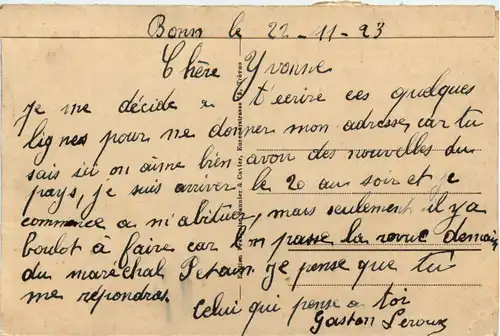 Bonn le 22-11-23
Chère Yvonne
Je me décide a t'ecrire ces quelques
lignes pour ne donner mon adresse car tu
sais si on aime bien avoir des nouvelles du
pays, je suis arriver le 20 au soir et je
commence a m'abituer, mais seulement il y a
boulot à faire car l'on passe la revue demain
du marechal Petain je pense que tu
me répondras.
Celui qui pense a toi
Gaston Leroux